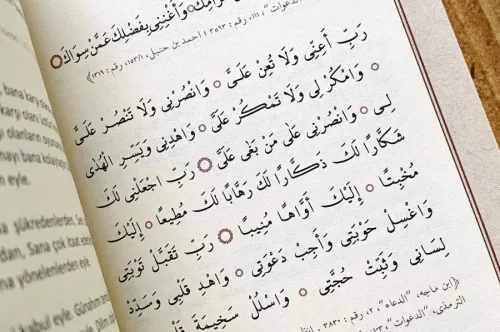 وَأَغْنِنِي بِفَضْلِكَ عَمَّنْ سِوَاكَ
الدعوات"، ١١١، رقم: ٣٥٦٣؛ احمد بن حنبل، ١/١٥٣، رقم: ١٣١٩)
رَبِّ أَعِنِّي وَلَا تُعِنْ عَلَيَّ وَانْصُرْنِي وَلَا تَنْصُرْ عَلَيَّ
وَامْكُرْ لِي وَلَا تَمْكُرْ عَلَيَّ وَاهْدِنِي وَيَسِّرِ الْهُدَى
لِي وَانْصُرْنِي عَلَى مَنْ بَغَى عَلَيَّ رَبِّ اجْعَلْنِي لَكَ
شَكَّارًا لَكَ ذَكَّارًا لَكَ رَهَّابًا لَكَ مُطِيعًا إِلَيْكَ
مُخْبِتًا إِلَيْكَ أَوَّاهًا مُنِيبًا رَبِّ تَقَبَّلْ تَوْبَتِي
وَاغْسِلْ حَوْبَتِي وَأَجِبْ دَعْوَتِي وَاهْدِ قَلْبِي وَسَدِّدْ
لِسَانِي وَثَبِّتْ حُجَّتِي وَاسْلُلْ سَخِيمَةَ
(ابن ماجه، "الدعاء"، ٢، رقم: ٣٨٣٠
الترمذي، "الدعوات"
bana karş
karşı olan
olanların
mayı bana kolaylaş
eyle.
şükredenlerden, Sen
dan, Sana çok itaat eden
a yönelenlerden eyle.
kabul eyle. Günahım